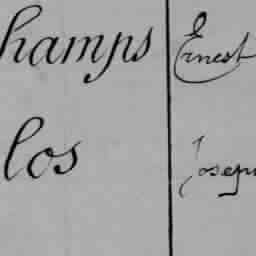 hamps Ernest
los Joseph